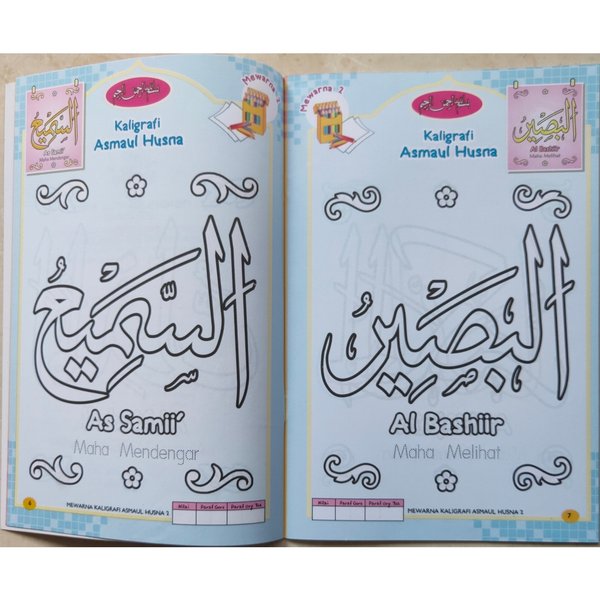 السَّمِيْعُ
As Samii'
Maha Mendengar
Mewarna 2
Kaligrafi
Asmaul Husna
السَّمِيْعُ
As Samii'
Maha Mendengar
6
MEWARNA KALIGRAFI ASMAUL HUSNA 2
Nilai Paraf Guru Paraf Org. Tua
Mewarna 2
Kaligrafi
Asmaul Husna
الْبَصِيْرُ
Al Bashiir
Maha Melihat
الْبَصِيْرُ
Al Bashiir
Maha Melihat
Nilai Paraf Guru Paraf Org. Tua
MEWARNA KALIGRAFI ASMAUL HUSNA 2
7